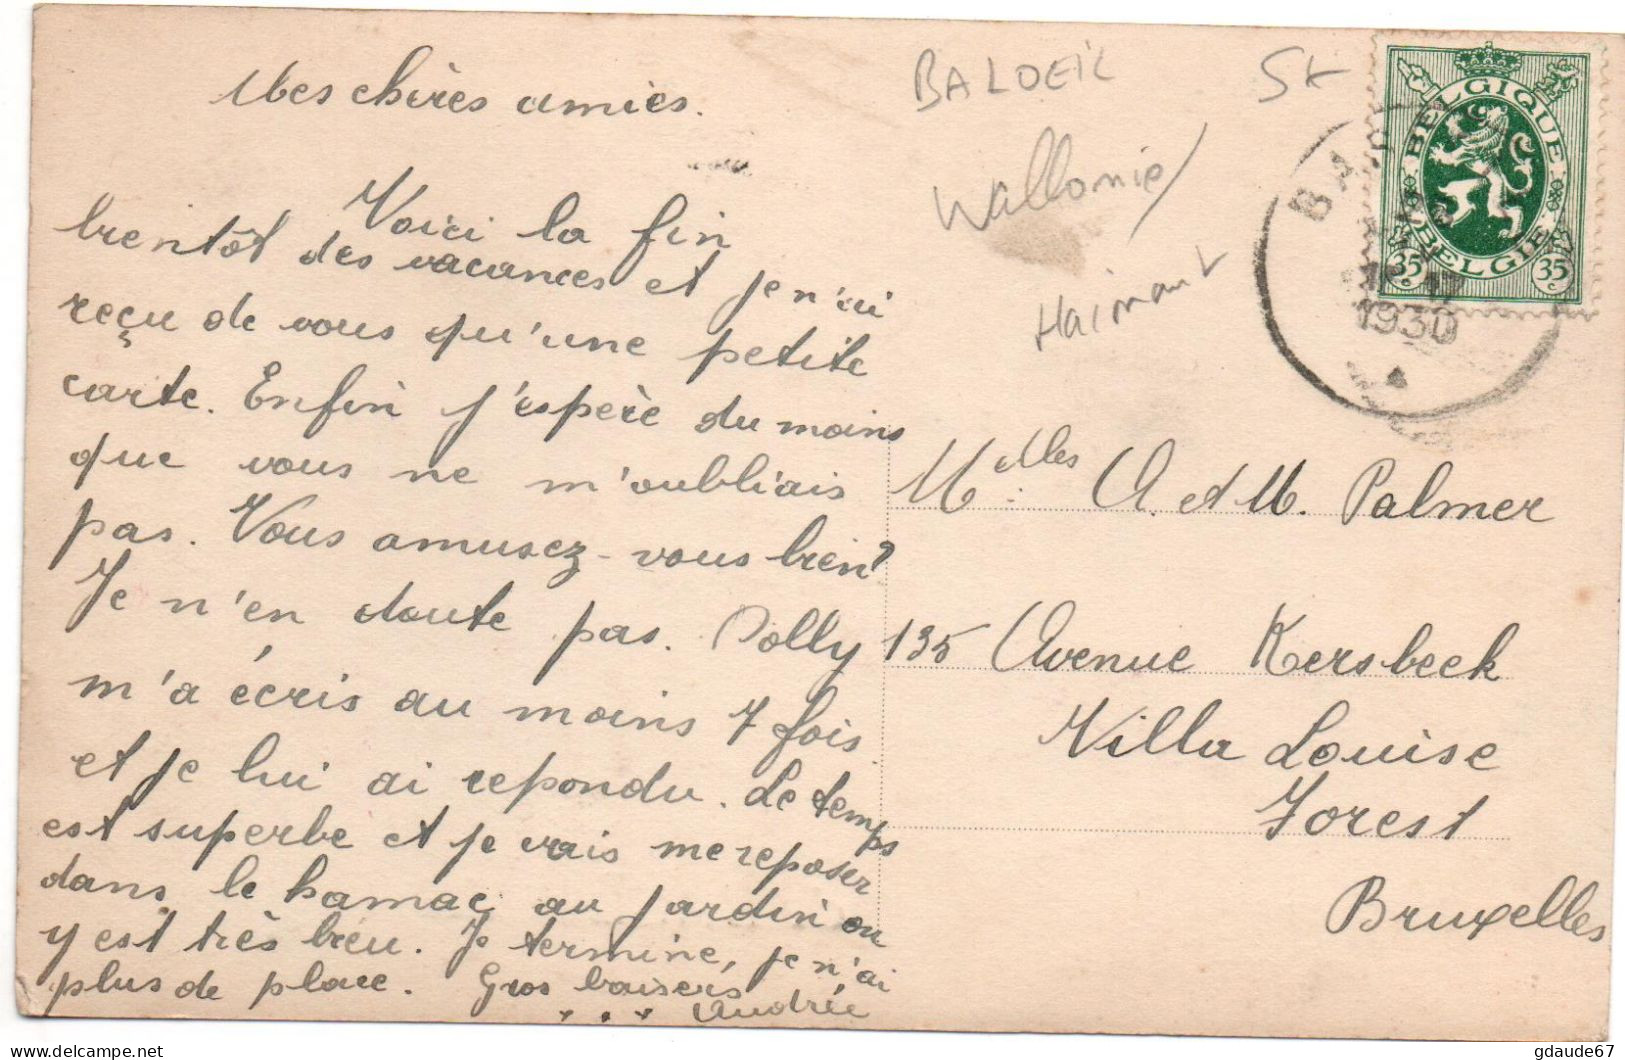 Mes chères amies.
Voici la fin
bientôt des vacances et je n'ai
reçu de vous qu'une petite
carte. Enfin j'espère du moins
que vous ne m'oubliais
pas. Vous amusez-vous bien?
Je n'en doute pas. Dolly
m'a écris au moins 7 fois
et je lui ai repondu. Le temps
est superbe et je vais me reposer
dans le hamac au jardin on
y est très bien. Je termine, je n'ai
plus de place. Gros baisers
Andrée
BALOEIL
5k
Wallonie/
Hainaut
BELGIQUE
BELGIE
35 c
35 c
1930
Melles A. et M. Palmer
135 Avenue Kersbeek
Villa Louise
Forest
Bruxelles
delcampe.net
gdaude67